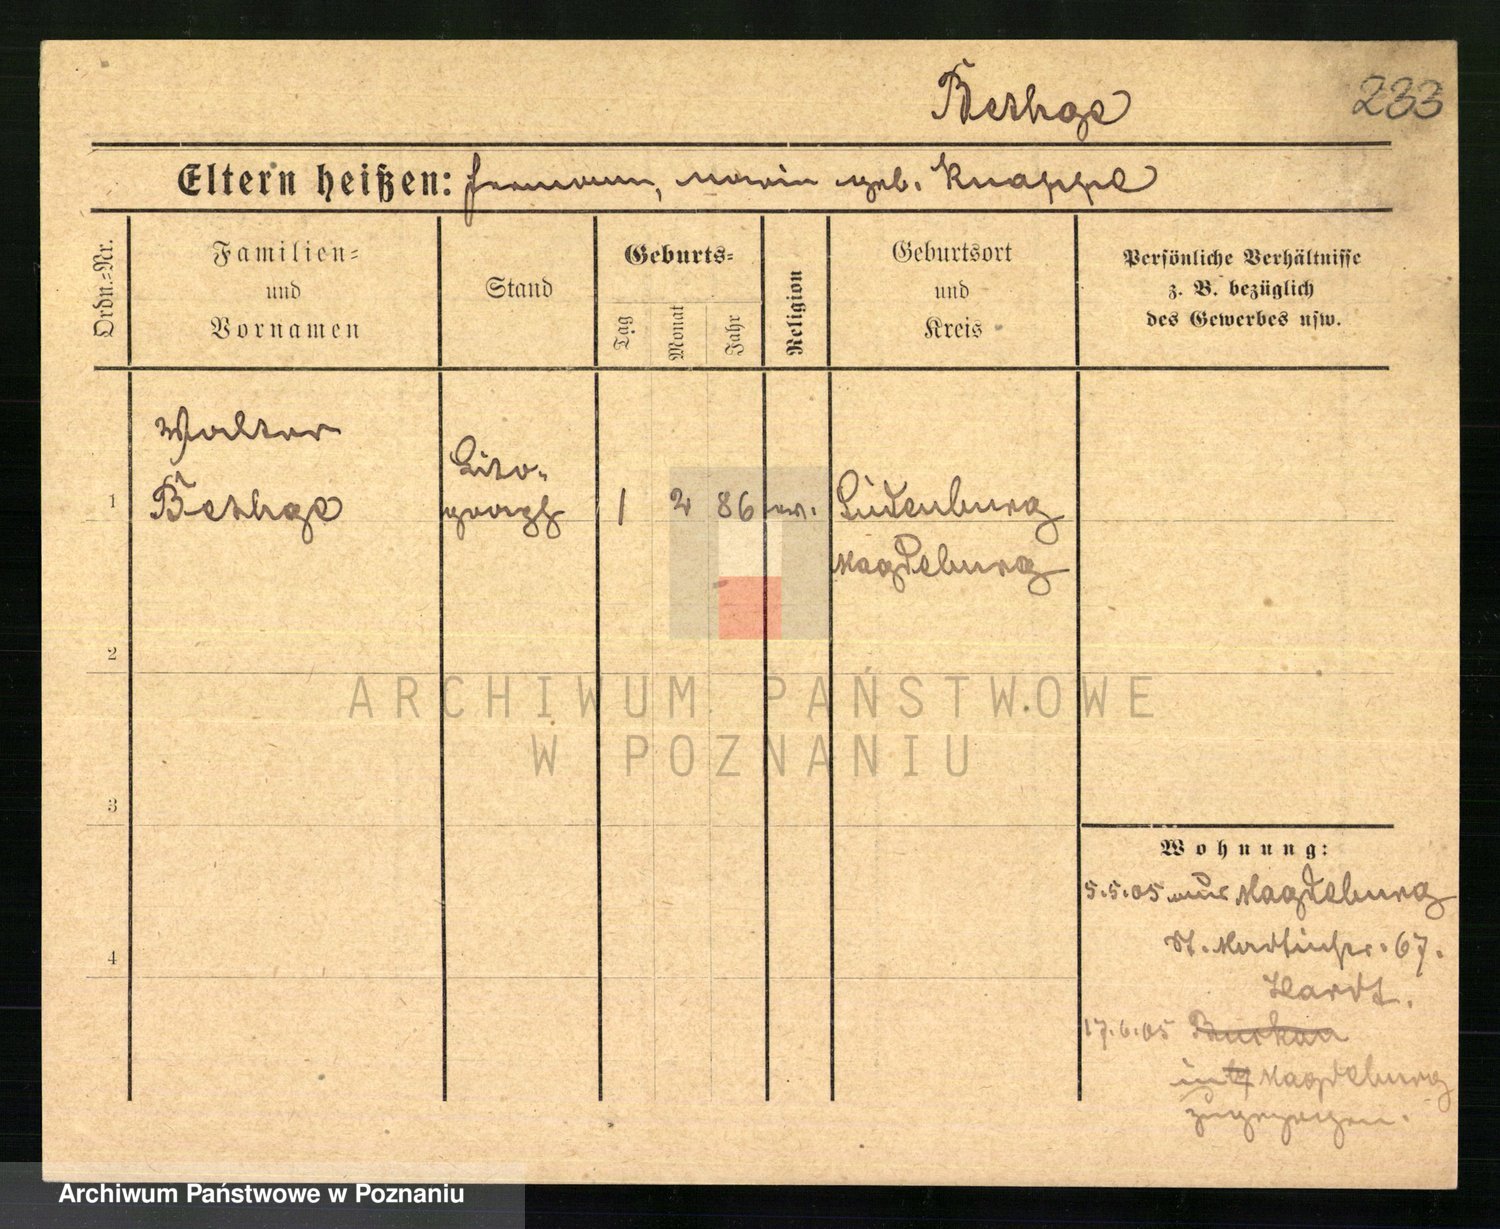 Bethge
233
Eltern heißen: Hermann, Marie geb. Knappe
Ordn.=Nr.
Familien=
und
Vornamen
Stand
Geburts=
Tag
Monat
Jahr
Religion
Geburtsort
und
Kreis
Persönliche Verhältnisse
z. B. bezüglich
des Gewerbes usw.
1
Walter
Bethge
Lito-
graph
1 2 86 ev.
Sudenburg
Magdeburg
2
3
4
Wohnung:
5.5.05 aus Magdeburg
St. Martinstr. 67.
Hardt.
17.6.05 Buckau
in Magdeburg
zugezogen.
ARCHIWUM PAŃSTWOWE
W POZNANIU
Archiwum Państwowe w Poznaniu